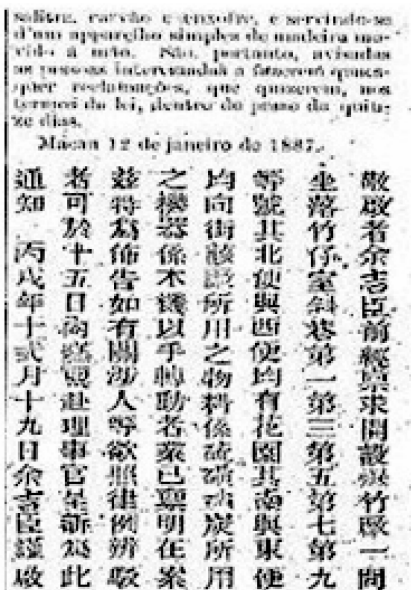 salitre, carvão e enxofre, e servindo-se
d'um apparelho simples de madeira mo-
vido á mão. São, portanto, avisadas
as pessoas interessadas a fazerem quaes-
quer reclamações, que quizerem, nos
termos da lei, dentro do praso da quin-
ze dias.
Macau 12 de janeiro de 1887.
敬啟者余吉臣前經稟求開設爆竹廠一間
坐落竹仔室斜巷第一第三第五第七第九
等號其北便與西便均有花園其南與東便
均向街該廠所用之物料係硫磺硝炭所用
之機器係木機以手轉動者業已稟明在案
茲特為佈告如有關涉人等欲照律例辨駁
者可於十五日內赴理事官呈訴為此
通知 丙戌年十弍月十九日余吉臣謹啟